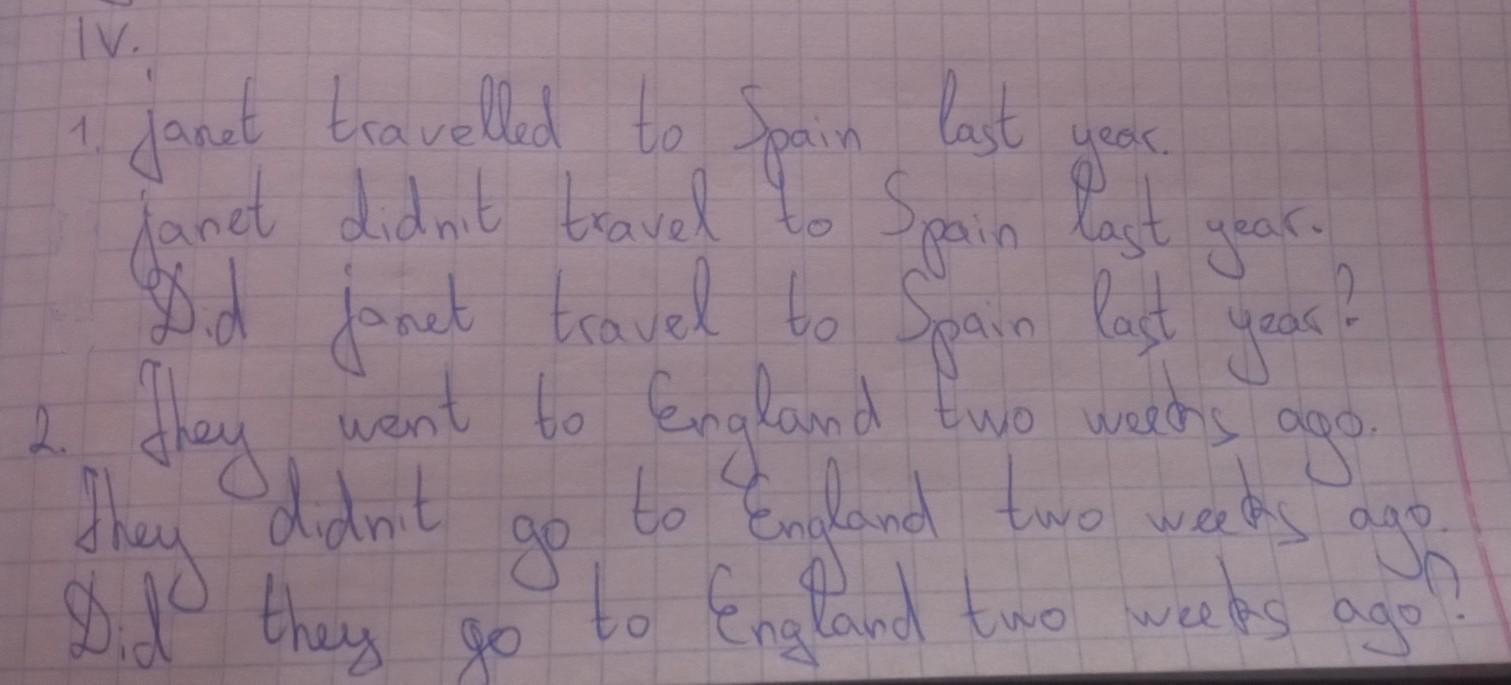 IV.
1. Janet travelled to Spain last year.
Janet didn't travel to Spain last year.
Did Janet travel to Spain last year?
2. They went to England two weeks ago.
They didn't go to England two weeks ago.
Did they go to England two weeks ago?